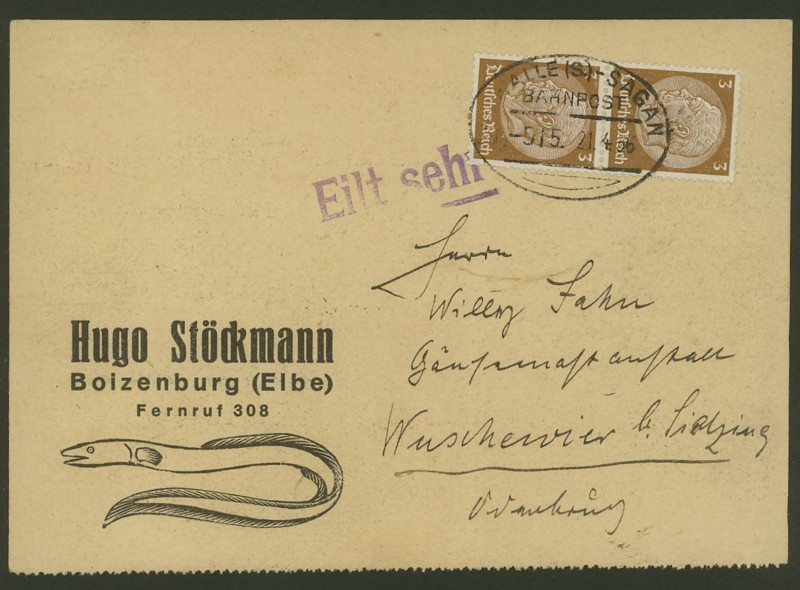 3
Deutsches Reich
3
3
Deutsches Reich
3
HALLE (S)-SAGAN
BAHNPOST
21.4.36
Eilt sehr
Herrn
Willy Jahn
Gänsemastanstalt
Wuschewier b.
Oderbruch
Hugo Stöckmann
Boizenburg (Elbe)
Fernruf 308